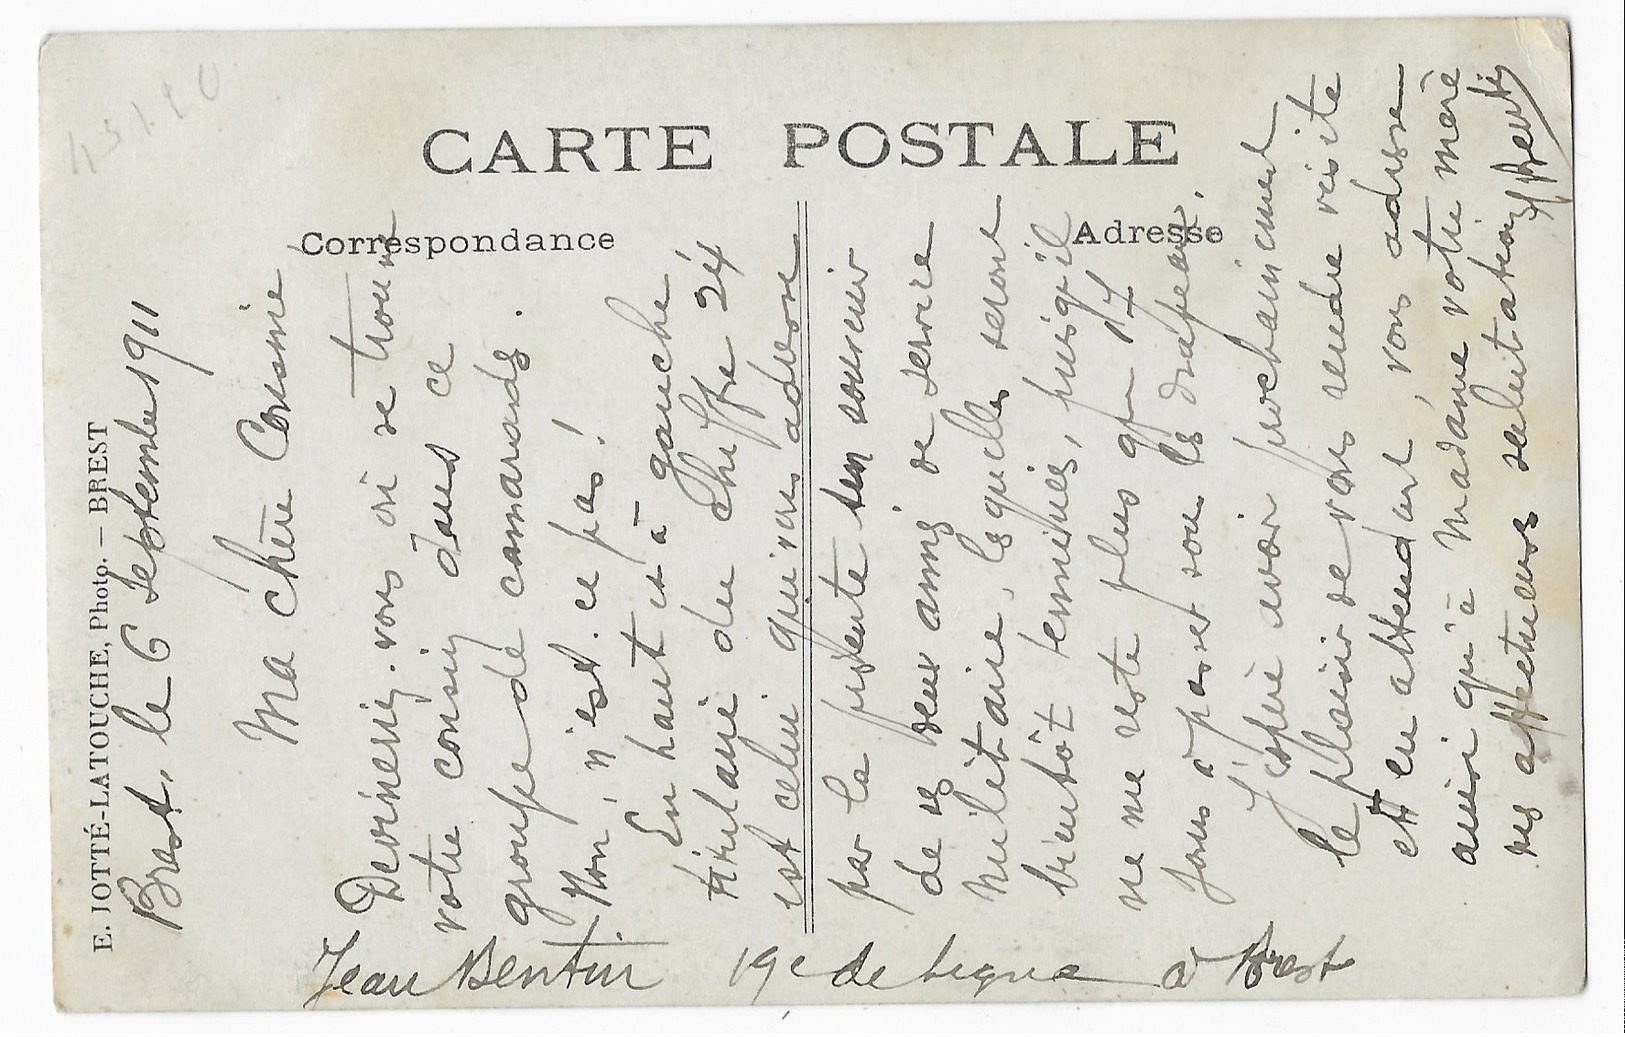 CARTE POSTALE
Correspondance
Adresse
E. JOTTÉ-LATOUCHE, Photo. — BREST
Brest, le 6 Septembre 1911
Ma chère Cousine
Devineriez-vous où se trouve
votre cousin dans ce
groupe de camarades.
Non, n'est-ce pas!
En haut et à gauche
titulaire du chiffre 24
est celui qui vous adresse
par la présente un souvenir
de ses deux années de service
militaire, lesquelles seront
bientôt terminées, puisqu'il
ne me reste plus que 17
jours à passer sous les drapeaux.
J'espère avoir prochainement
le plaisir de vous rendre visite
et en attendant, vous adresse
ainsi qu'à madame votre mère
mes affectueuses salutations
Jean Bentin 19e de Ligne à Brest